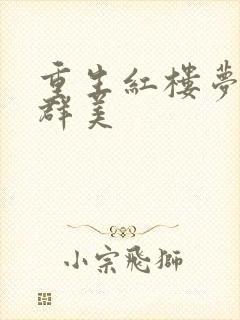 重生紅樓夢
群美
小宗飛獅